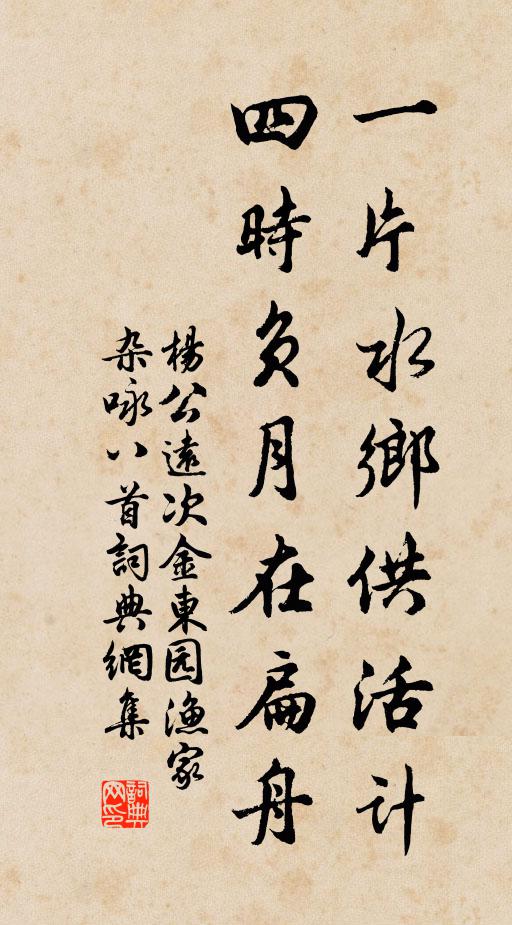 一片水鄉供活計
四時負月在扁舟
楊公遠次金東园漁家
杂咏八首詞典網集
詞典網印